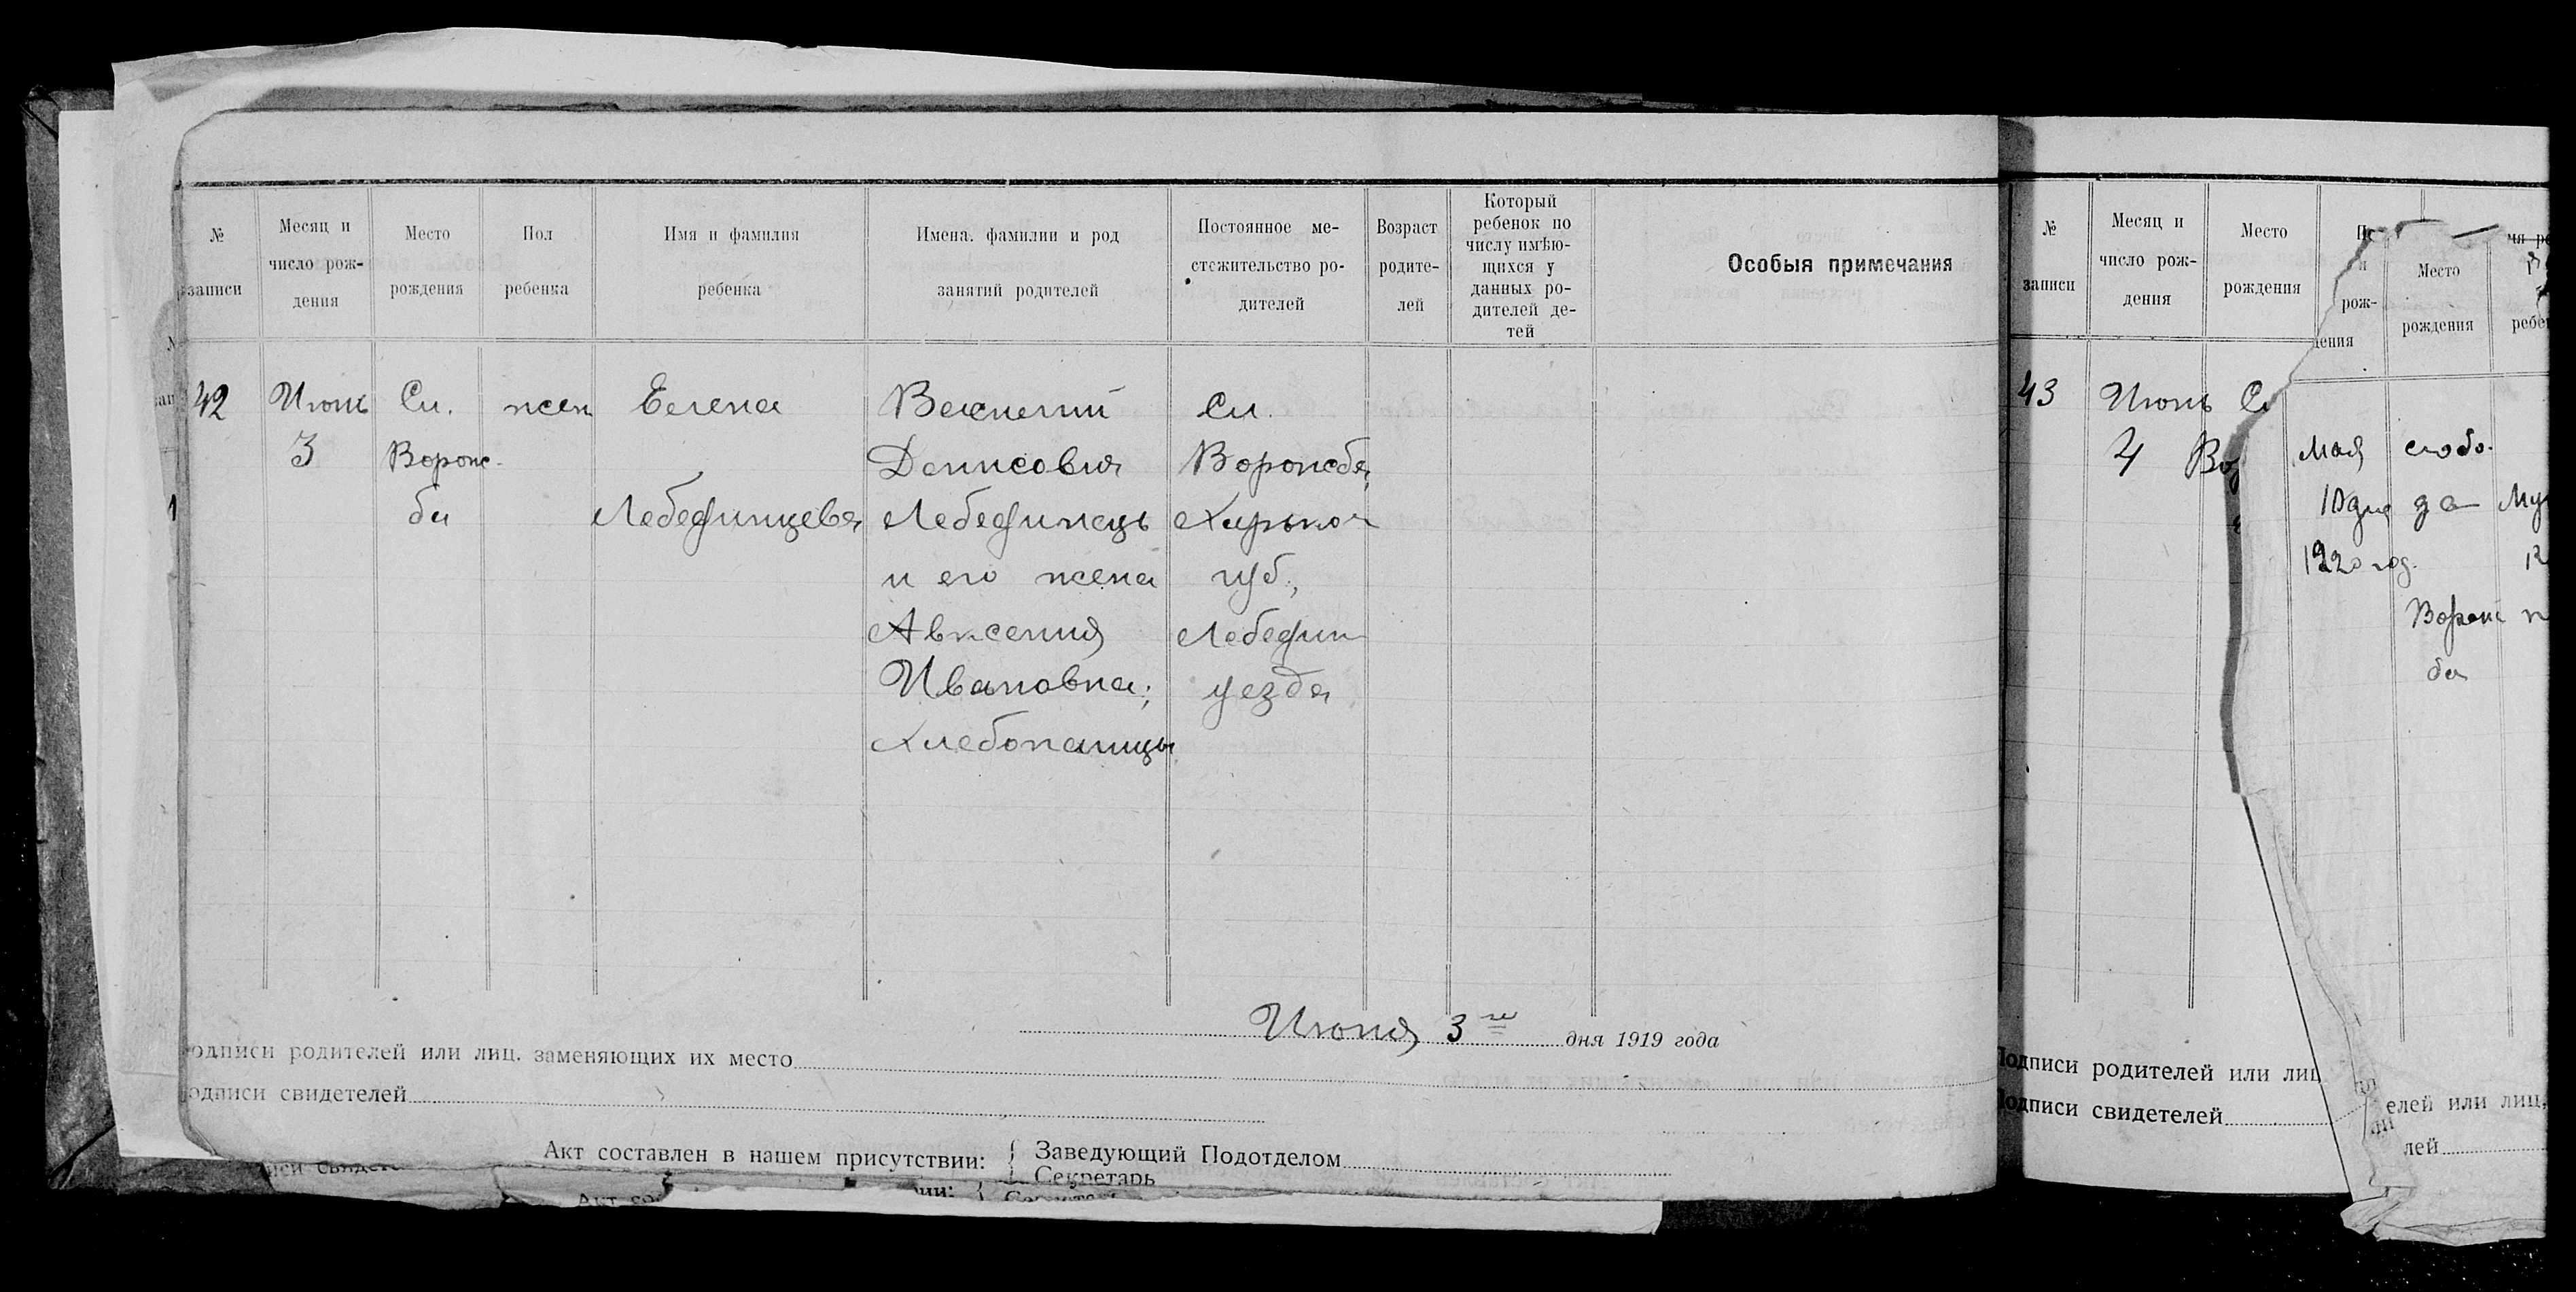 № записи
Месяц и число рождения
Место рождения
Пол ребенка
Имя и фамилия ребенка
Имена. фамилии и род занятий родителей
Постоянное местожительство родителей
Возраст родителей
Который ребенок по числу имѣющихся у данных родителей детей
Особыя примечания
42 Июнь Сл. жен Елена Василий Сл.
3 Ворож- Денисовия Ворожба,
ба Лебединцева Лебединець Харьков
и его жена губ.,
Авксения Лебедин
Ивановна; уезда
хлебопашцы
Июня 3го дня 1919 года
одписи родителей или лиц. заменяющих их место
одписи свидетелей
Акт составлен в нашем присутствии: Заведующий Подотделом
Секретарь
№ записи
Месяц и число рождения
Место рождения
43 Июнь Сл
4 Во
Подписи родителей или лиц
Подписи свидетелей
рож-
дения
Место рождения
ребе
Мая слобо-
10 дня да
1920 год.
Ворож
ба
елей или лиц.
лей